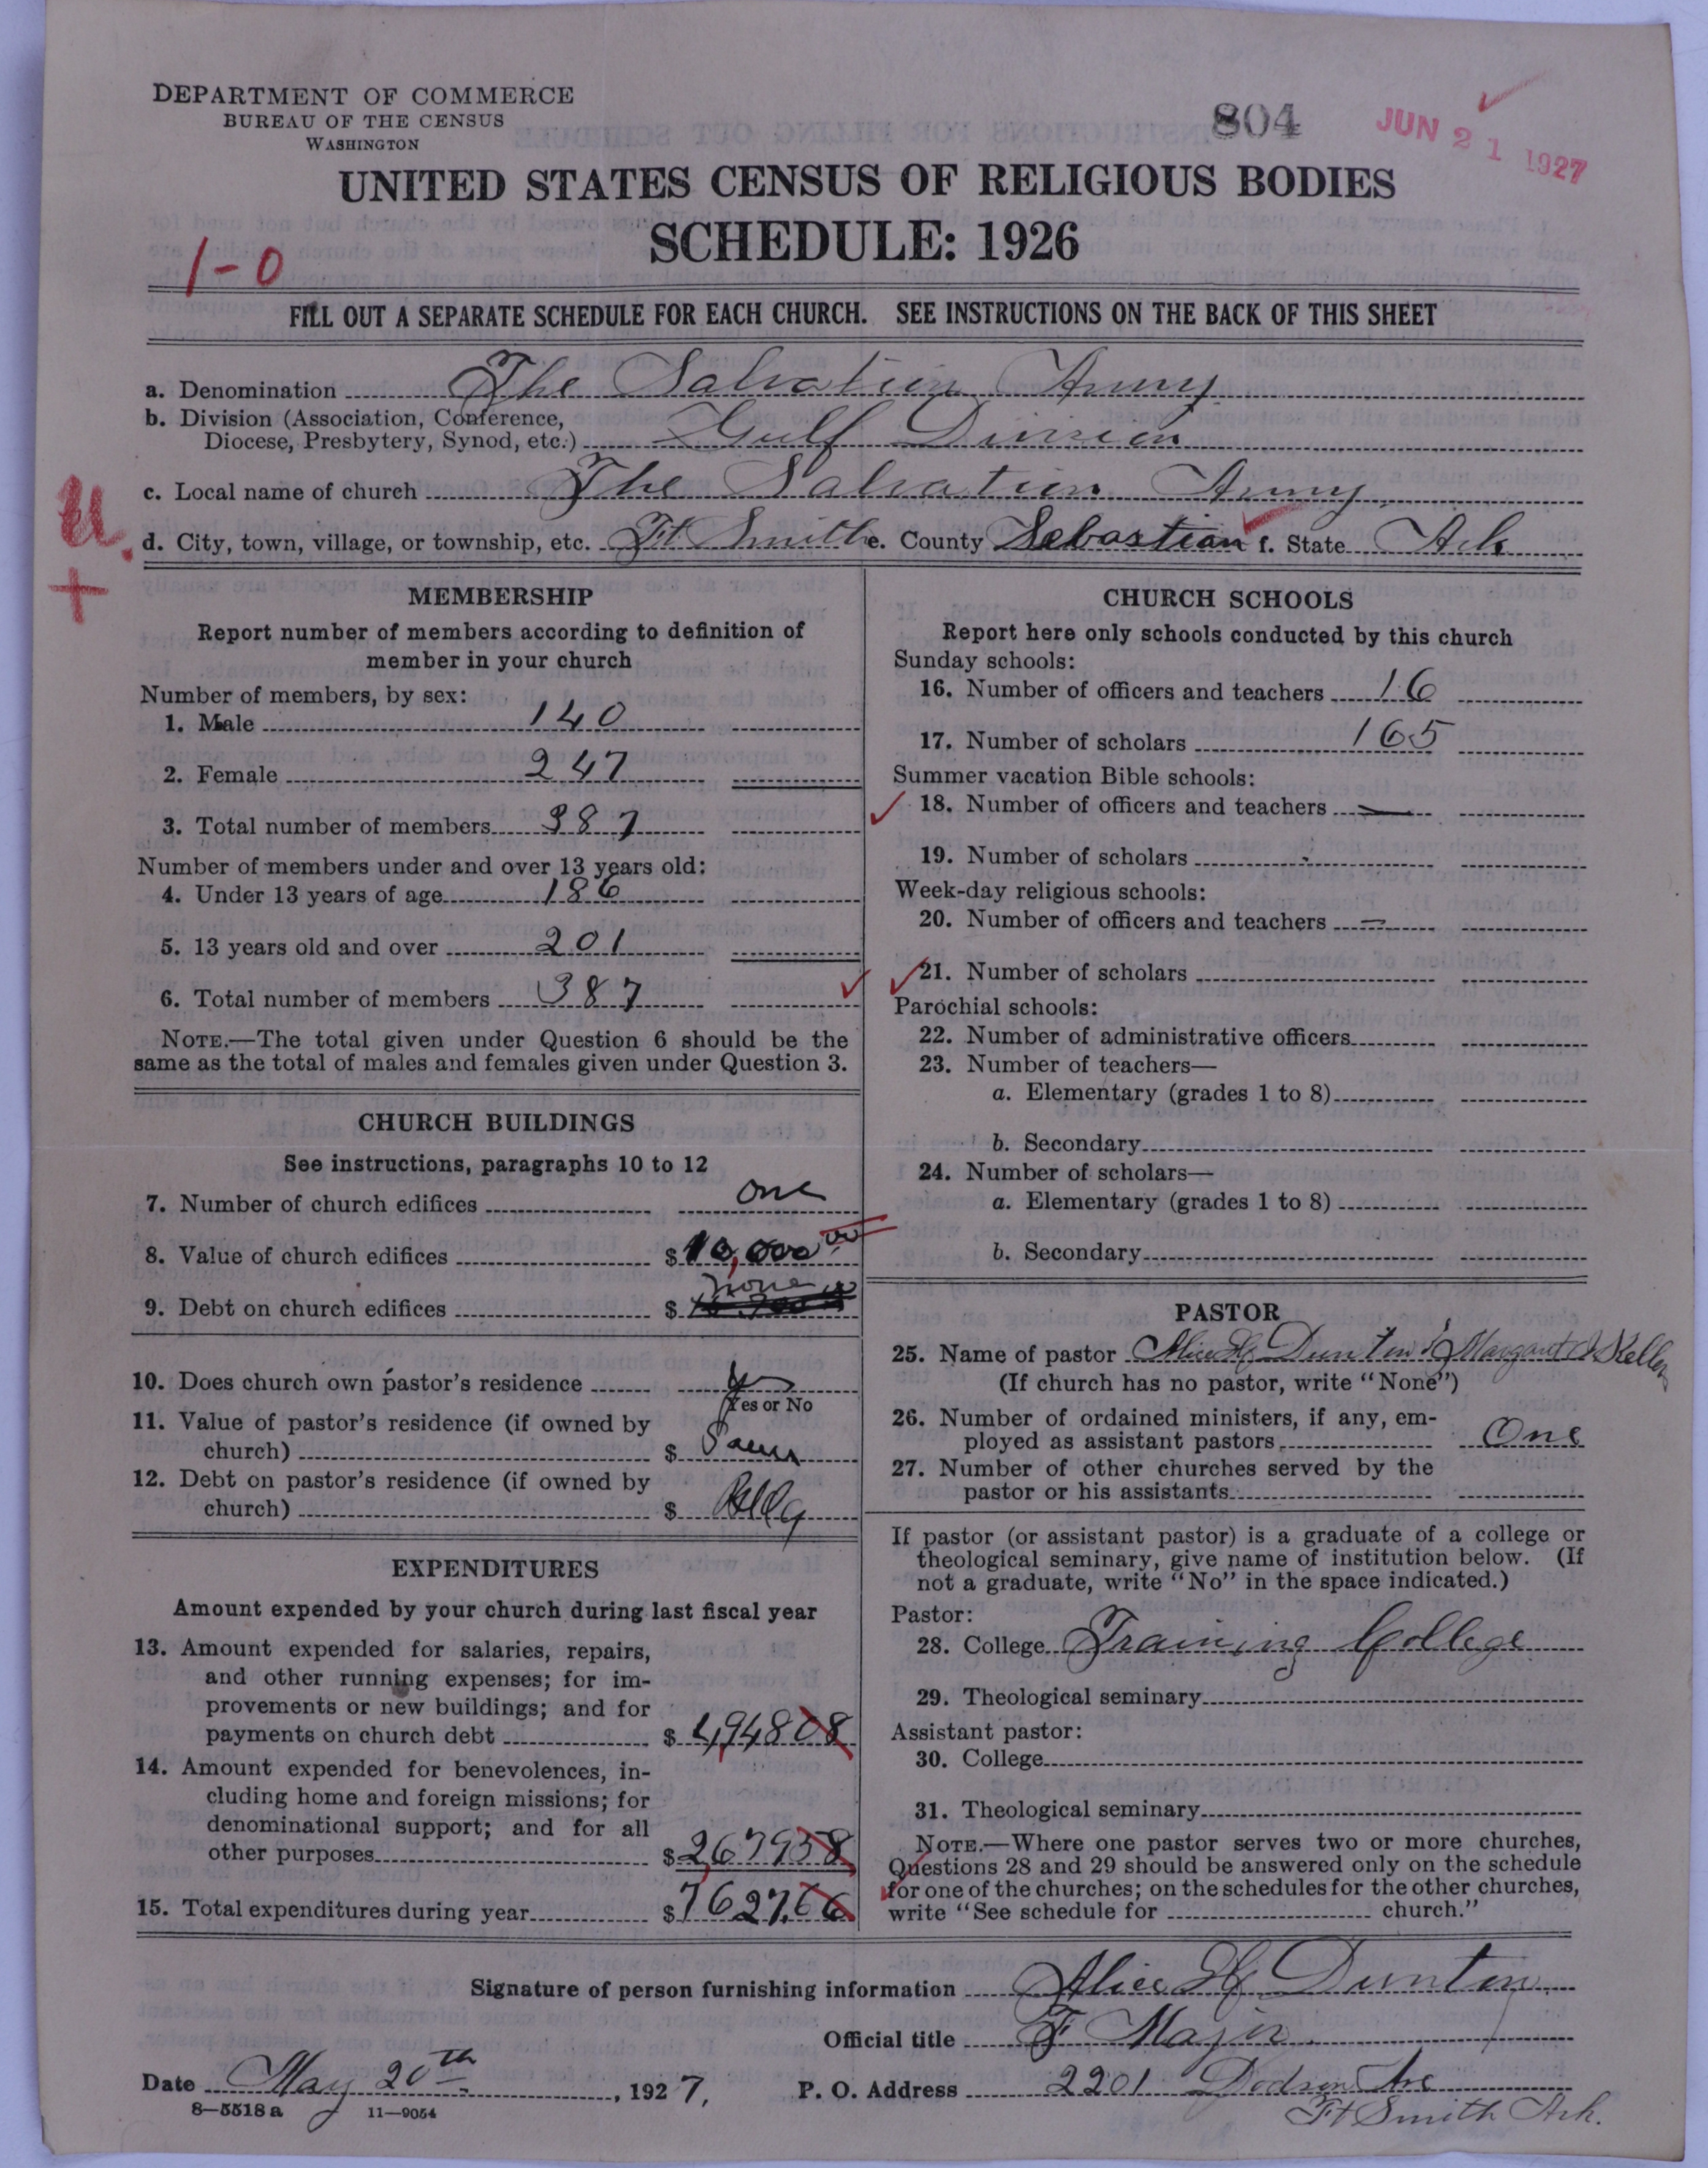 DEPARTMENT OF COMMERCE
BUREAU OF THE CENSUS
WASHINGTON
804
JUN 21 1927
UNITED STATES CENSUS OF RELIGIOUS BODIES
SCHEDULE: 1926
1-0
FILL OUT A SEPARATE SCHEDULE FOR EACH CHURCH. SEE INSTRUCTIONS ON THE BACK OF THIS SHEET
a. Denomination The Salvation Army
b. Division (Association, Conference,
Diocese, Presbytery, Synod, etc.) Gulf Division
c. Local name of church The Salvation Army
d. City, town, village, or township, etc. Ft Smith e. County Sebastian f. State Ark
U.
+
MEMBERSHIP
Report number of members according to definition of
member in your church
Number of members, by sex:
1. Male 140
2. Female 247
3. Total number of members 387
Number of members under and over 13 years old:
4. Under 13 years of age 186
5. 13 years old and over 201
6. Total number of members 387
NOTE.—The total given under Question 6 should be the
same as the total of males and females given under Question 3.
CHURCH BUILDINGS
See instructions, paragraphs 10 to 12
7. Number of church edifices one
8. Value of church edifices $10,000 00
9. Debt on church edifices $ none
10. Does church own pastor's residence yes
Yes or No
11. Value of pastor's residence (if owned by
church) $ Same
12. Debt on pastor's residence (if owned by
church) $ Bldg
EXPENDITURES
Amount expended by your church during last fiscal year
13. Amount expended for salaries, repairs,
and other running expenses; for im-
provements or new buildings; and for
payments on church debt $ 4,948 08
14. Amount expended for benevolences, in-
cluding home and foreign missions; for
denominational support; and for all
other purposes $ 2,679 58
15. Total expenditures during year $ 7627.66
CHURCH SCHOOLS
Report here only schools conducted by this church
Sunday schools:
16. Number of officers and teachers 16
17. Number of scholars 165
Summer vacation Bible schools:
18. Number of officers and teachers —
19. Number of scholars
Week-day religious schools:
20. Number of officers and teachers —
21. Number of scholars
Parochial schools:
22. Number of administrative officers
23. Number of teachers—
a. Elementary (grades 1 to 8)
b. Secondary
24. Number of scholars—
a. Elementary (grades 1 to 8)
b. Secondary
PASTOR
25. Name of pastor Alice H. Dunton & Margaret Kelley
(If church has no pastor, write "None")
26. Number of ordained ministers, if any, em-
ployed as assistant pastors One
27. Number of other churches served by the
pastor or his assistants
If pastor (or assistant pastor) is a graduate of a college or
theological seminary, give name of institution below. (If
not a graduate, write "No" in the space indicated.)
Pastor:
28. College Training College
29. Theological seminary
Assistant pastor:
30. College
31. Theological seminary
NOTE.—Where one pastor serves two or more churches,
Questions 28 and 29 should be answered only on the schedule
for one of the churches; on the schedules for the other churches,
write "See schedule for church."
Signature of person furnishing information Alice H. Dunton
Official title F. Major
Date May 20th, 1927. P. O. Address 2201 Dodson Ave
Ft Smith Ark.
8—5518a 11—9054